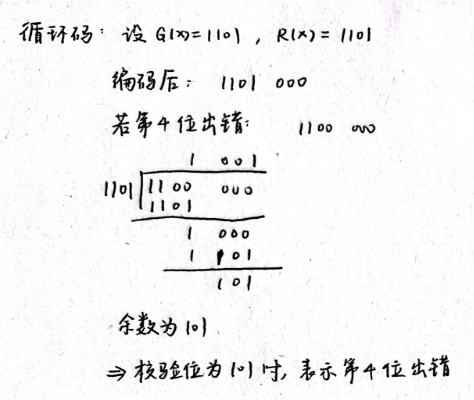 循环码: 设 G(x)=1101 , R(x)=1101
编码后: 1101 000
若第4位出错: 1100 000
1 001
1101 1100 000
1101
1 000
1 101
101
余数为101
⇒ 校验位为101时, 表示第4位出错